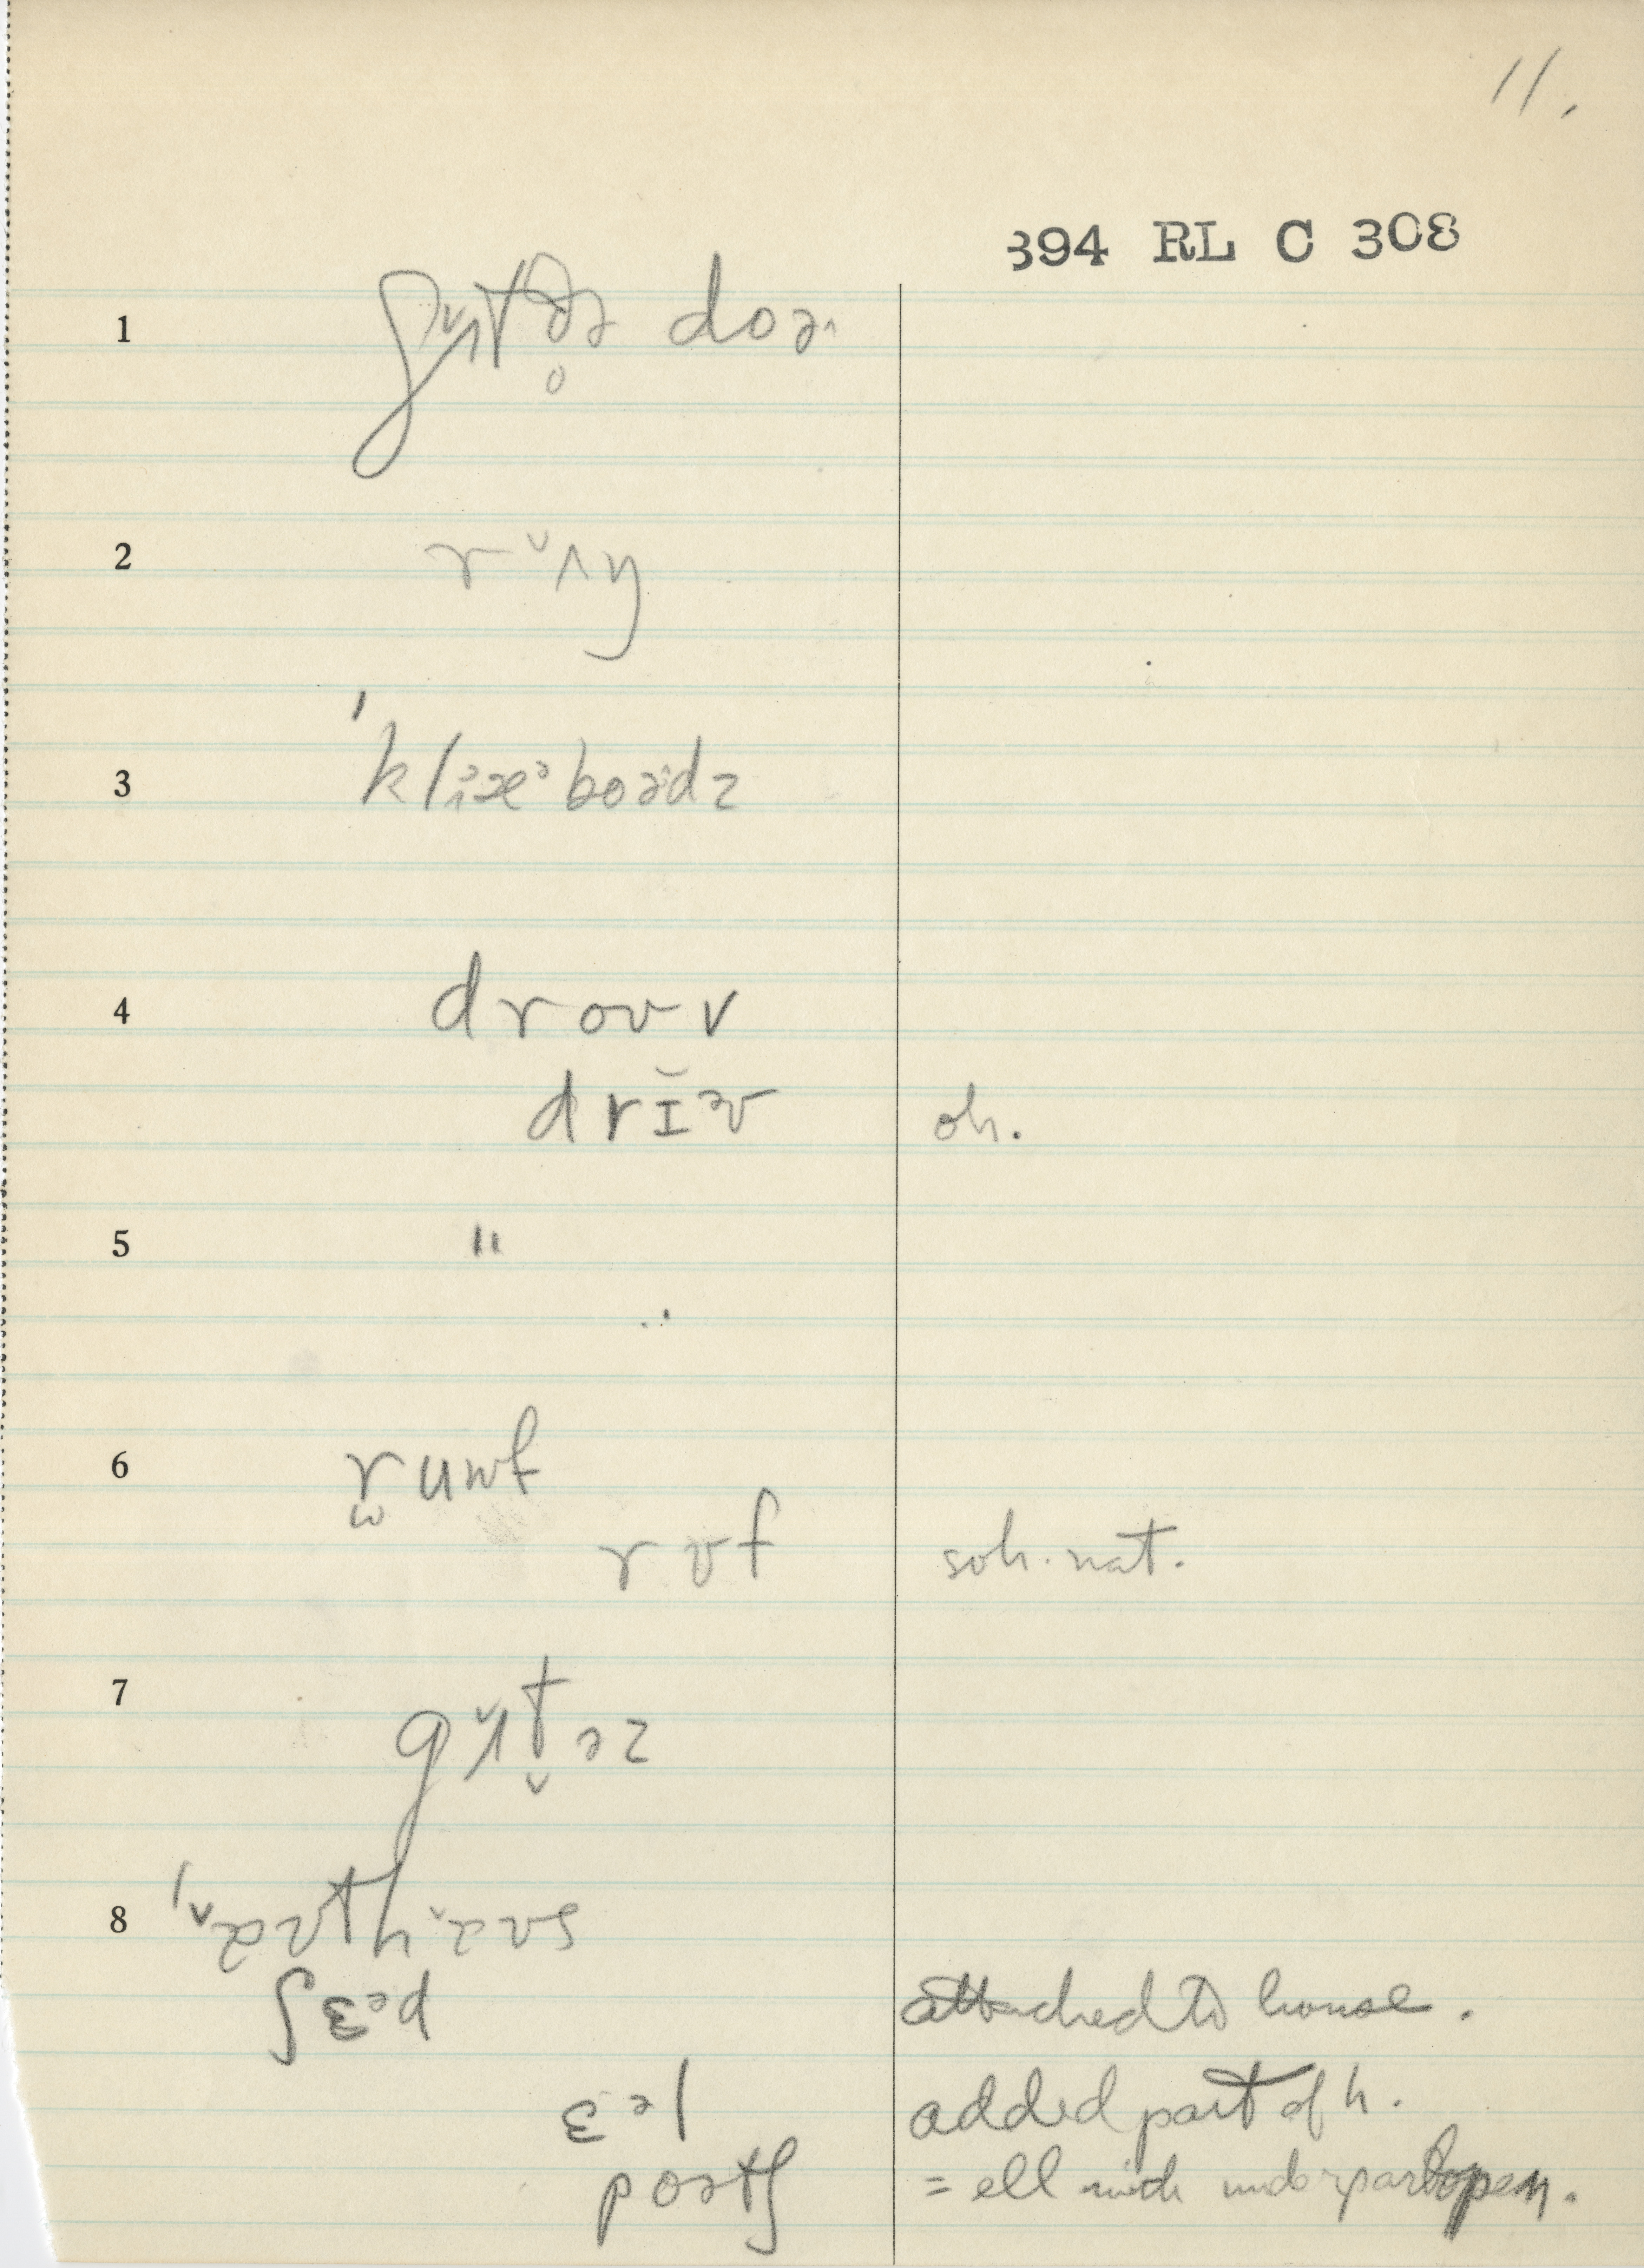 11.
394 RL C 308
1 ʃʌtə doə
2 rʌŋ
3 'klæᵊboədz
4 droʊv
drĭəv oh.
5 "
6 ruwf
rʊf soh. nat.
7 gʌtəz
8 'aʊthaʊs
ʃɛᵊd attached to house.
ɛᵊl added part of h.
poətʃ = ell with under part open.